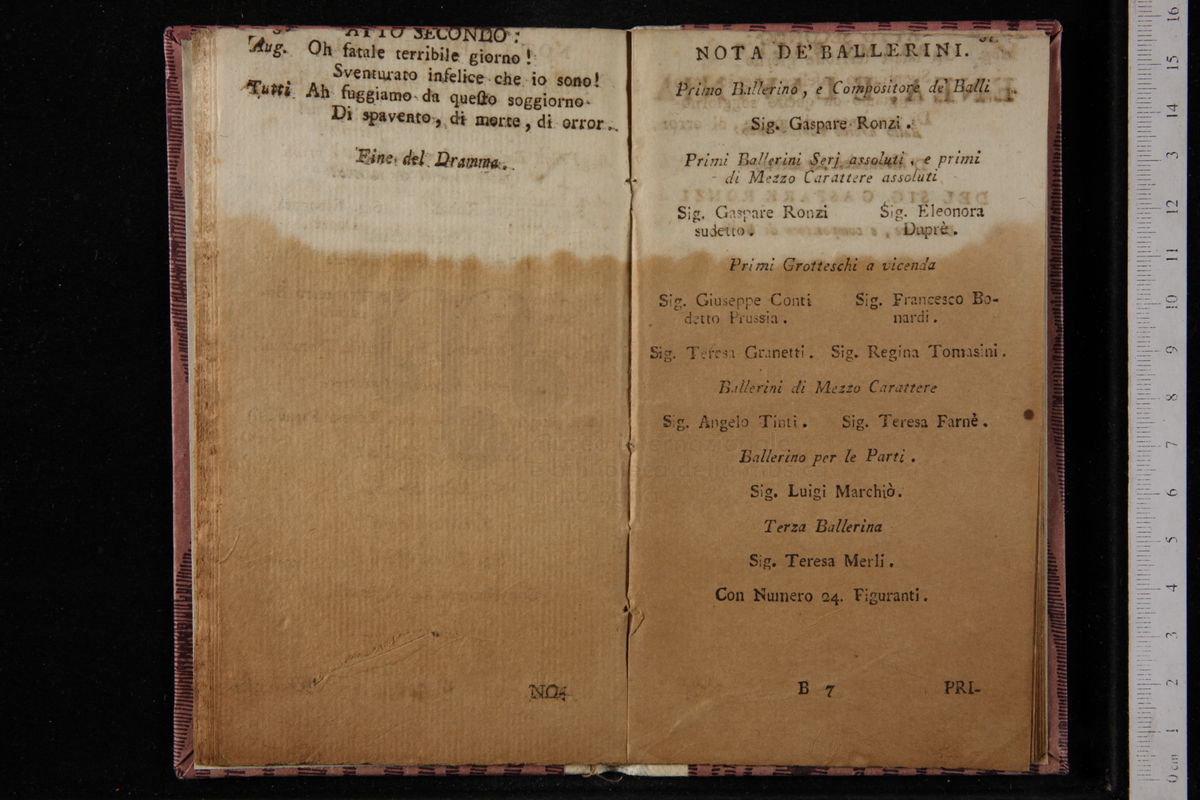 ATTO SECONDO.
Aug. Oh fatale terribile giorno!
Sventurato infelice che io sono!
Tutti Ah fuggiamo da questo soggiorno
Di spavento, di morte, di orror.
Fine del Dramma.
NO-
NOTA DE' BALLERINI.
Primo Ballerino, e Compositore de' Balli
Sig. Gaspare Ronzi.
Primi Ballerini Serj assoluti, e primi
di Mezzo Carattere assoluti
Sig. Gaspare Ronzi Sig. Eleonora
sudetto. Duprè.
Primi Grotteschi a vicenda
Sig. Giuseppe Conti Sig. Francesco Bo-
detto Prussia. nardi.
Sig. Teresa Granetti. Sig. Regina Tomasini.
Ballerini di Mezzo Carattere
Sig. Angelo Tinti. Sig. Teresa Farnè.
Ballerino per le Parti.
Sig. Luigi Marchiò.
Terza Ballerina
Sig. Teresa Merli.
Con Numero 24. Figuranti.
B 7 PRI-
0 cm 1 2 3 4 5 6 7 8 9 10 11 12 13 14 15 16